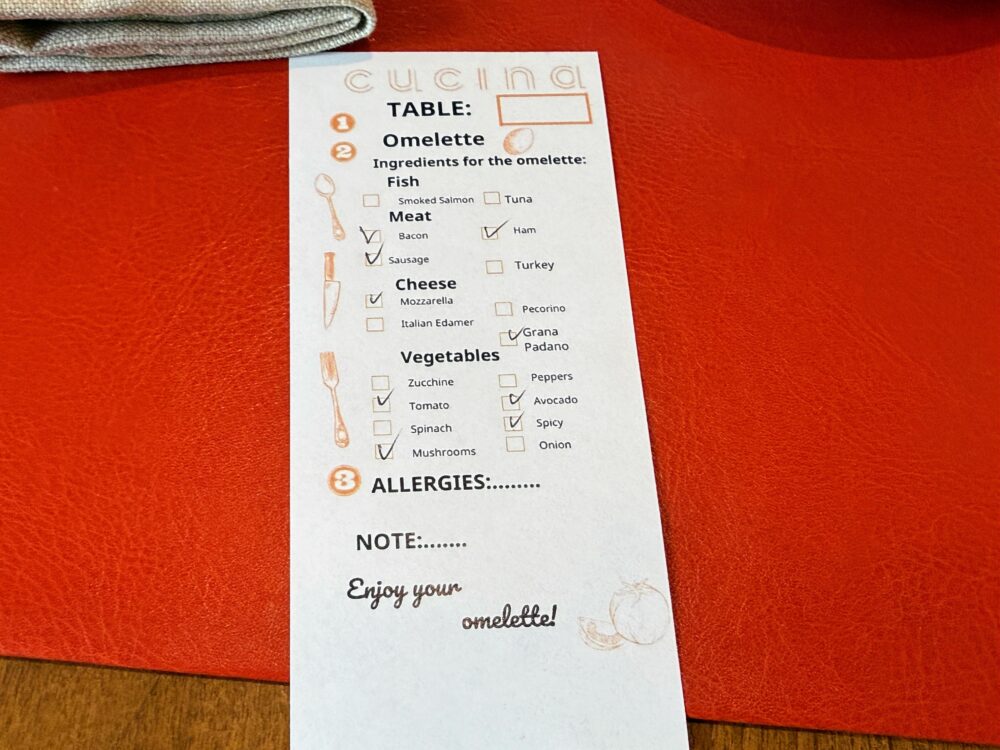 cucina
1 TABLE:
2 Omelette
Ingredients for the omelette:
Fish
Smoked Salmon Tuna
Meat
Bacon Ham
Sausage Turkey
Cheese
Mozzarella Pecorino
Italian Edamer Grana
Padano
Vegetables
Zucchine Peppers
Tomato Avocado
Spinach Spicy
Mushrooms Onion
3 ALLERGIES:........
NOTE:.......
Enjoy your
omelette!